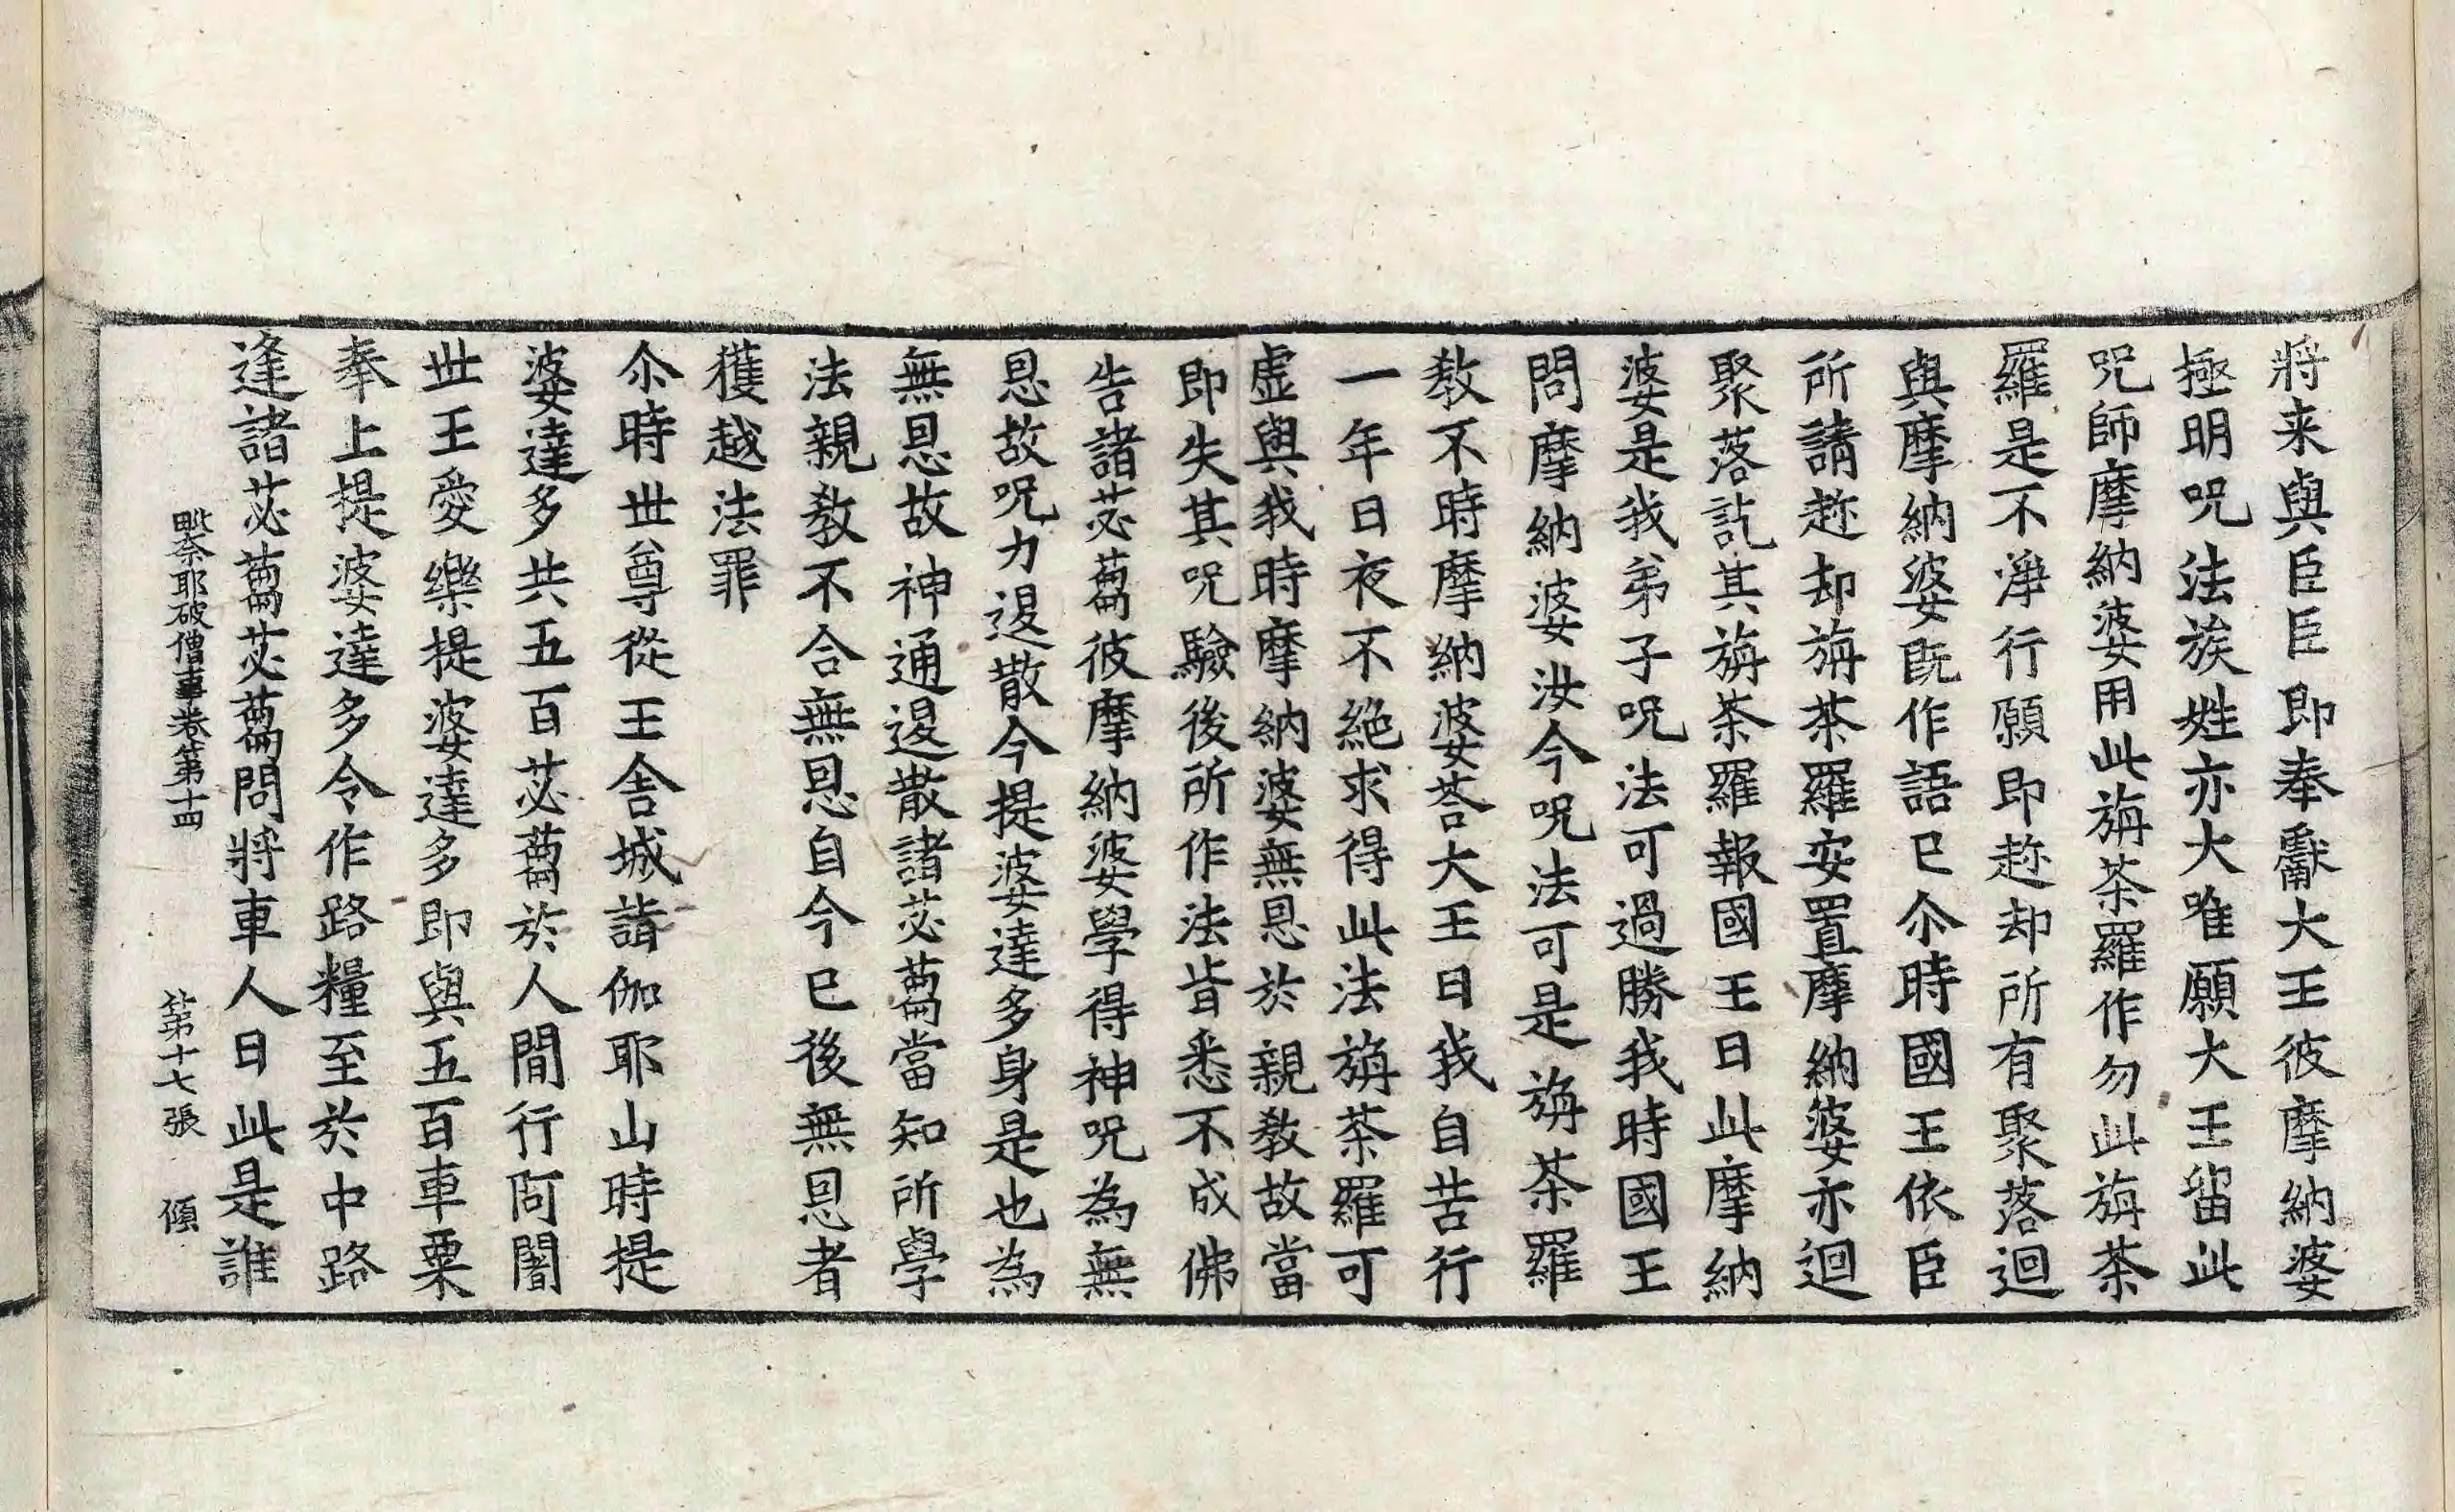 將来與臣臣即奉獻大王彼摩納婆
極明呪法族姓亦大唯願大王留此
呪師摩納婆用此旃茶羅作勿此旃茶
羅是不淨行願即趂却所有聚落迴
與摩納婆旣作語已尒時國王依臣
所請趂却旃茶羅安置摩納婆亦迴
聚落訖其旃茶羅報國王曰此摩納
婆是我弟子呪法可過勝我時國王
問摩納婆汝今呪法可是旃茶羅
教不時摩納婆荅大王曰我自苦行
一年日夜不絕求得此法旃茶羅可
虛與我時摩納婆無恩於親教故當
即失其呪驗後所作法皆悉不成佛
告諸苾蒭彼摩納婆學得神呪為無
恩故呪力退散今提婆達多身是也為
無恩故神通退散諸苾蒭當知所學
法親教不合無恩自今已後無恩者
獲越法罪
尒時世尊從王舍城詣伽耶山時提
婆達多共五百苾蒭於人間行阿闍
世王愛樂提婆達多即與五百車粟
奉上提婆達多令作路糧至於中路
逢諸苾蒭苾蒭問將車人曰此是誰
毗奈耶破僧事卷第十四 第十七張 傾